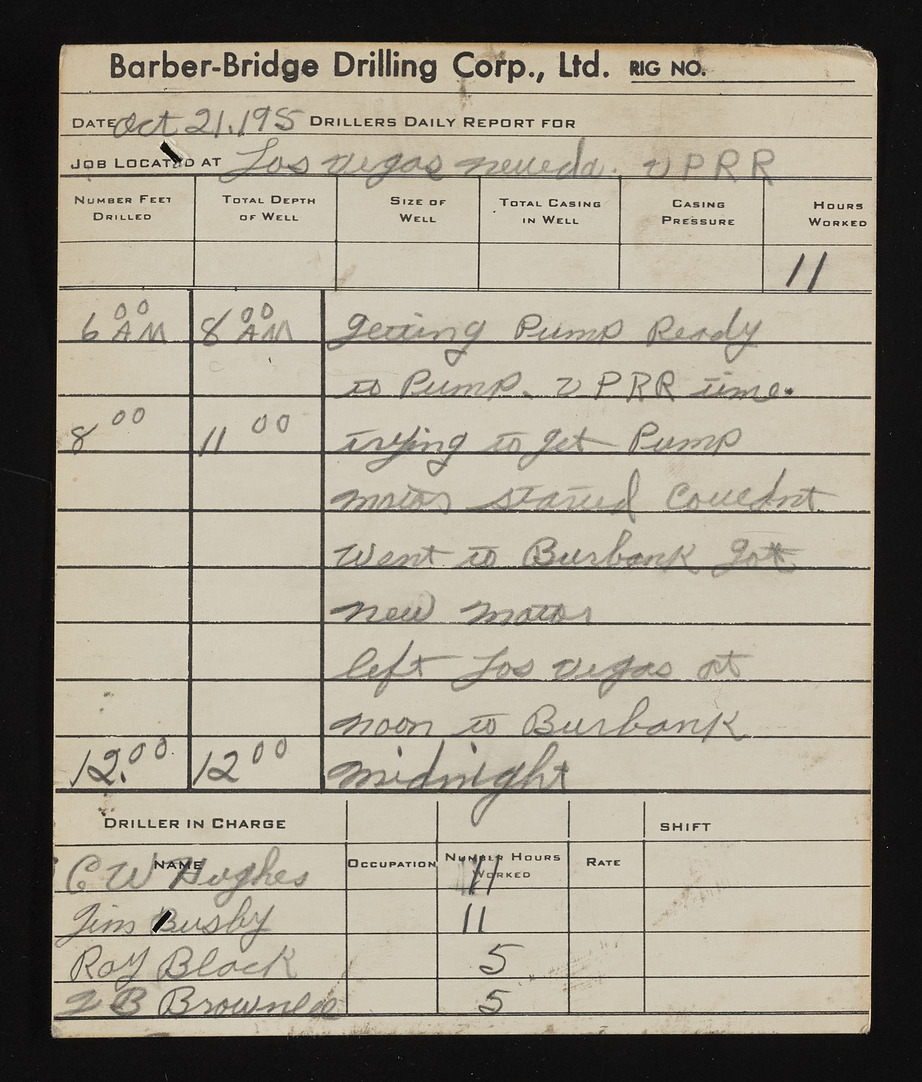 Barber-Bridge Drilling Corp., Ltd. RIG NO.
DATE Oct 21, 195 DRILLERS DAILY REPORT FOR
JOB LOCATED AT Los Vegas neveda. UPRR
NUMBER FEET DRILLED TOTAL DEPTH OF WELL SIZE OF WELL TOTAL CASING IN WELL CASING PRESSURE HOURS WORKED
11
6 00 AM 8 00 AM getting Pump Ready
to Pump. UPRR time.
8 00 11 00 trying to get Pump
motor started Couldnt
Went to Burbank got
new motor
left Los Vegas at
noon to Burbank
12.00 12 00 midnight
DRILLER IN CHARGE SHIFT
NAME OCCUPATION NUMBER HOURS WORKED RATE
C W Hughes 11
Jim Busby 11
Ray Black 5
B Brownlee 5